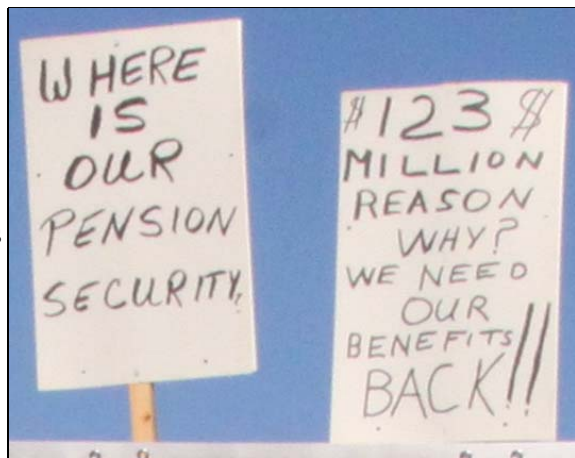 WHERE
IS
OUR
PENSION
SECURITY?
$123$
MILLION
REASON
WHY?
WE NEED
OUR
BENEFITS
BACK!!